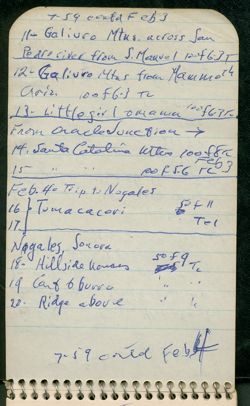 7-59 contd Feb 3
11- Galiuro Mtns. across San
Pedro river from S. Manuel 100f6.3 T
12- Galiuro Mtns from Mammoth
100f6.3 TC
13- Little girl 100f6.3 TC
From Oracle Junction →
14. Santa Catalina Mtns 100f8 TC
Feb 3
15 " " " 100f5.6 TC
Feb. 4 Trip to Nogales
16 } Tumacacori f11
17 } Tel
Nogales, Sonora
18- Hillside houses 50f9 Tc
19 Cart & burro " "
20- Ridge above " "
7-59 contd Feb 4